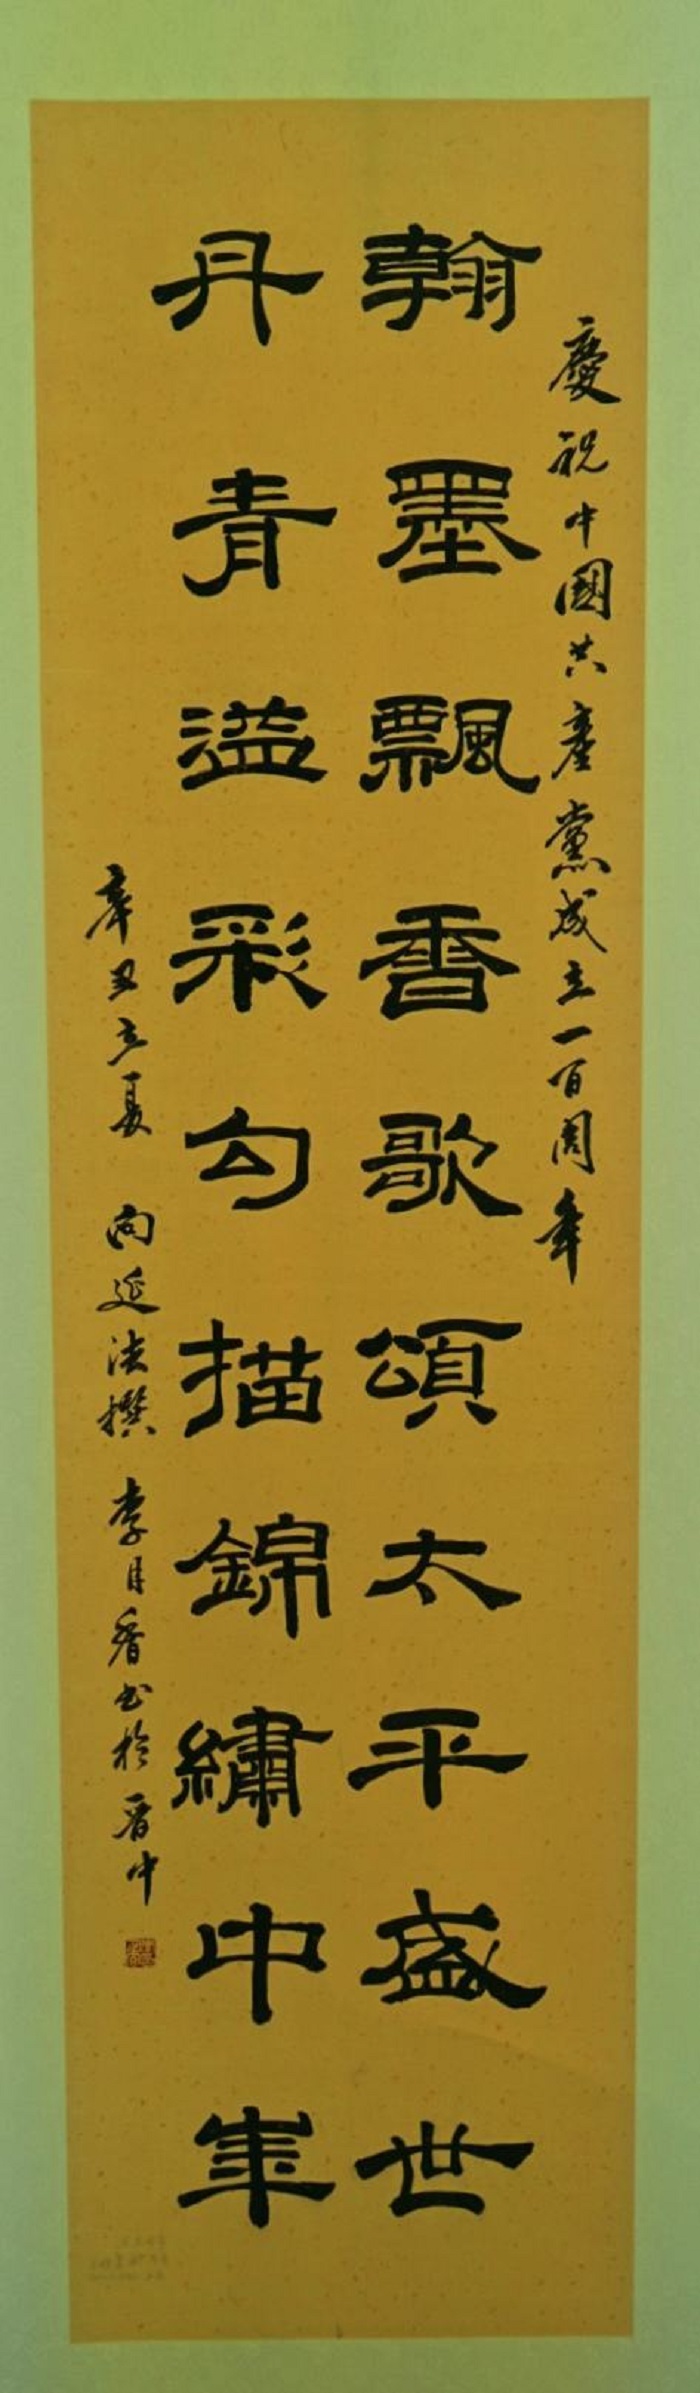 慶祝中國共產黨成立一百周年
翰墨飄香歌頌太平盛世
丹青溢彩勾描錦繡中華
辛丑立夏 向延法撰 李月香书於晋中